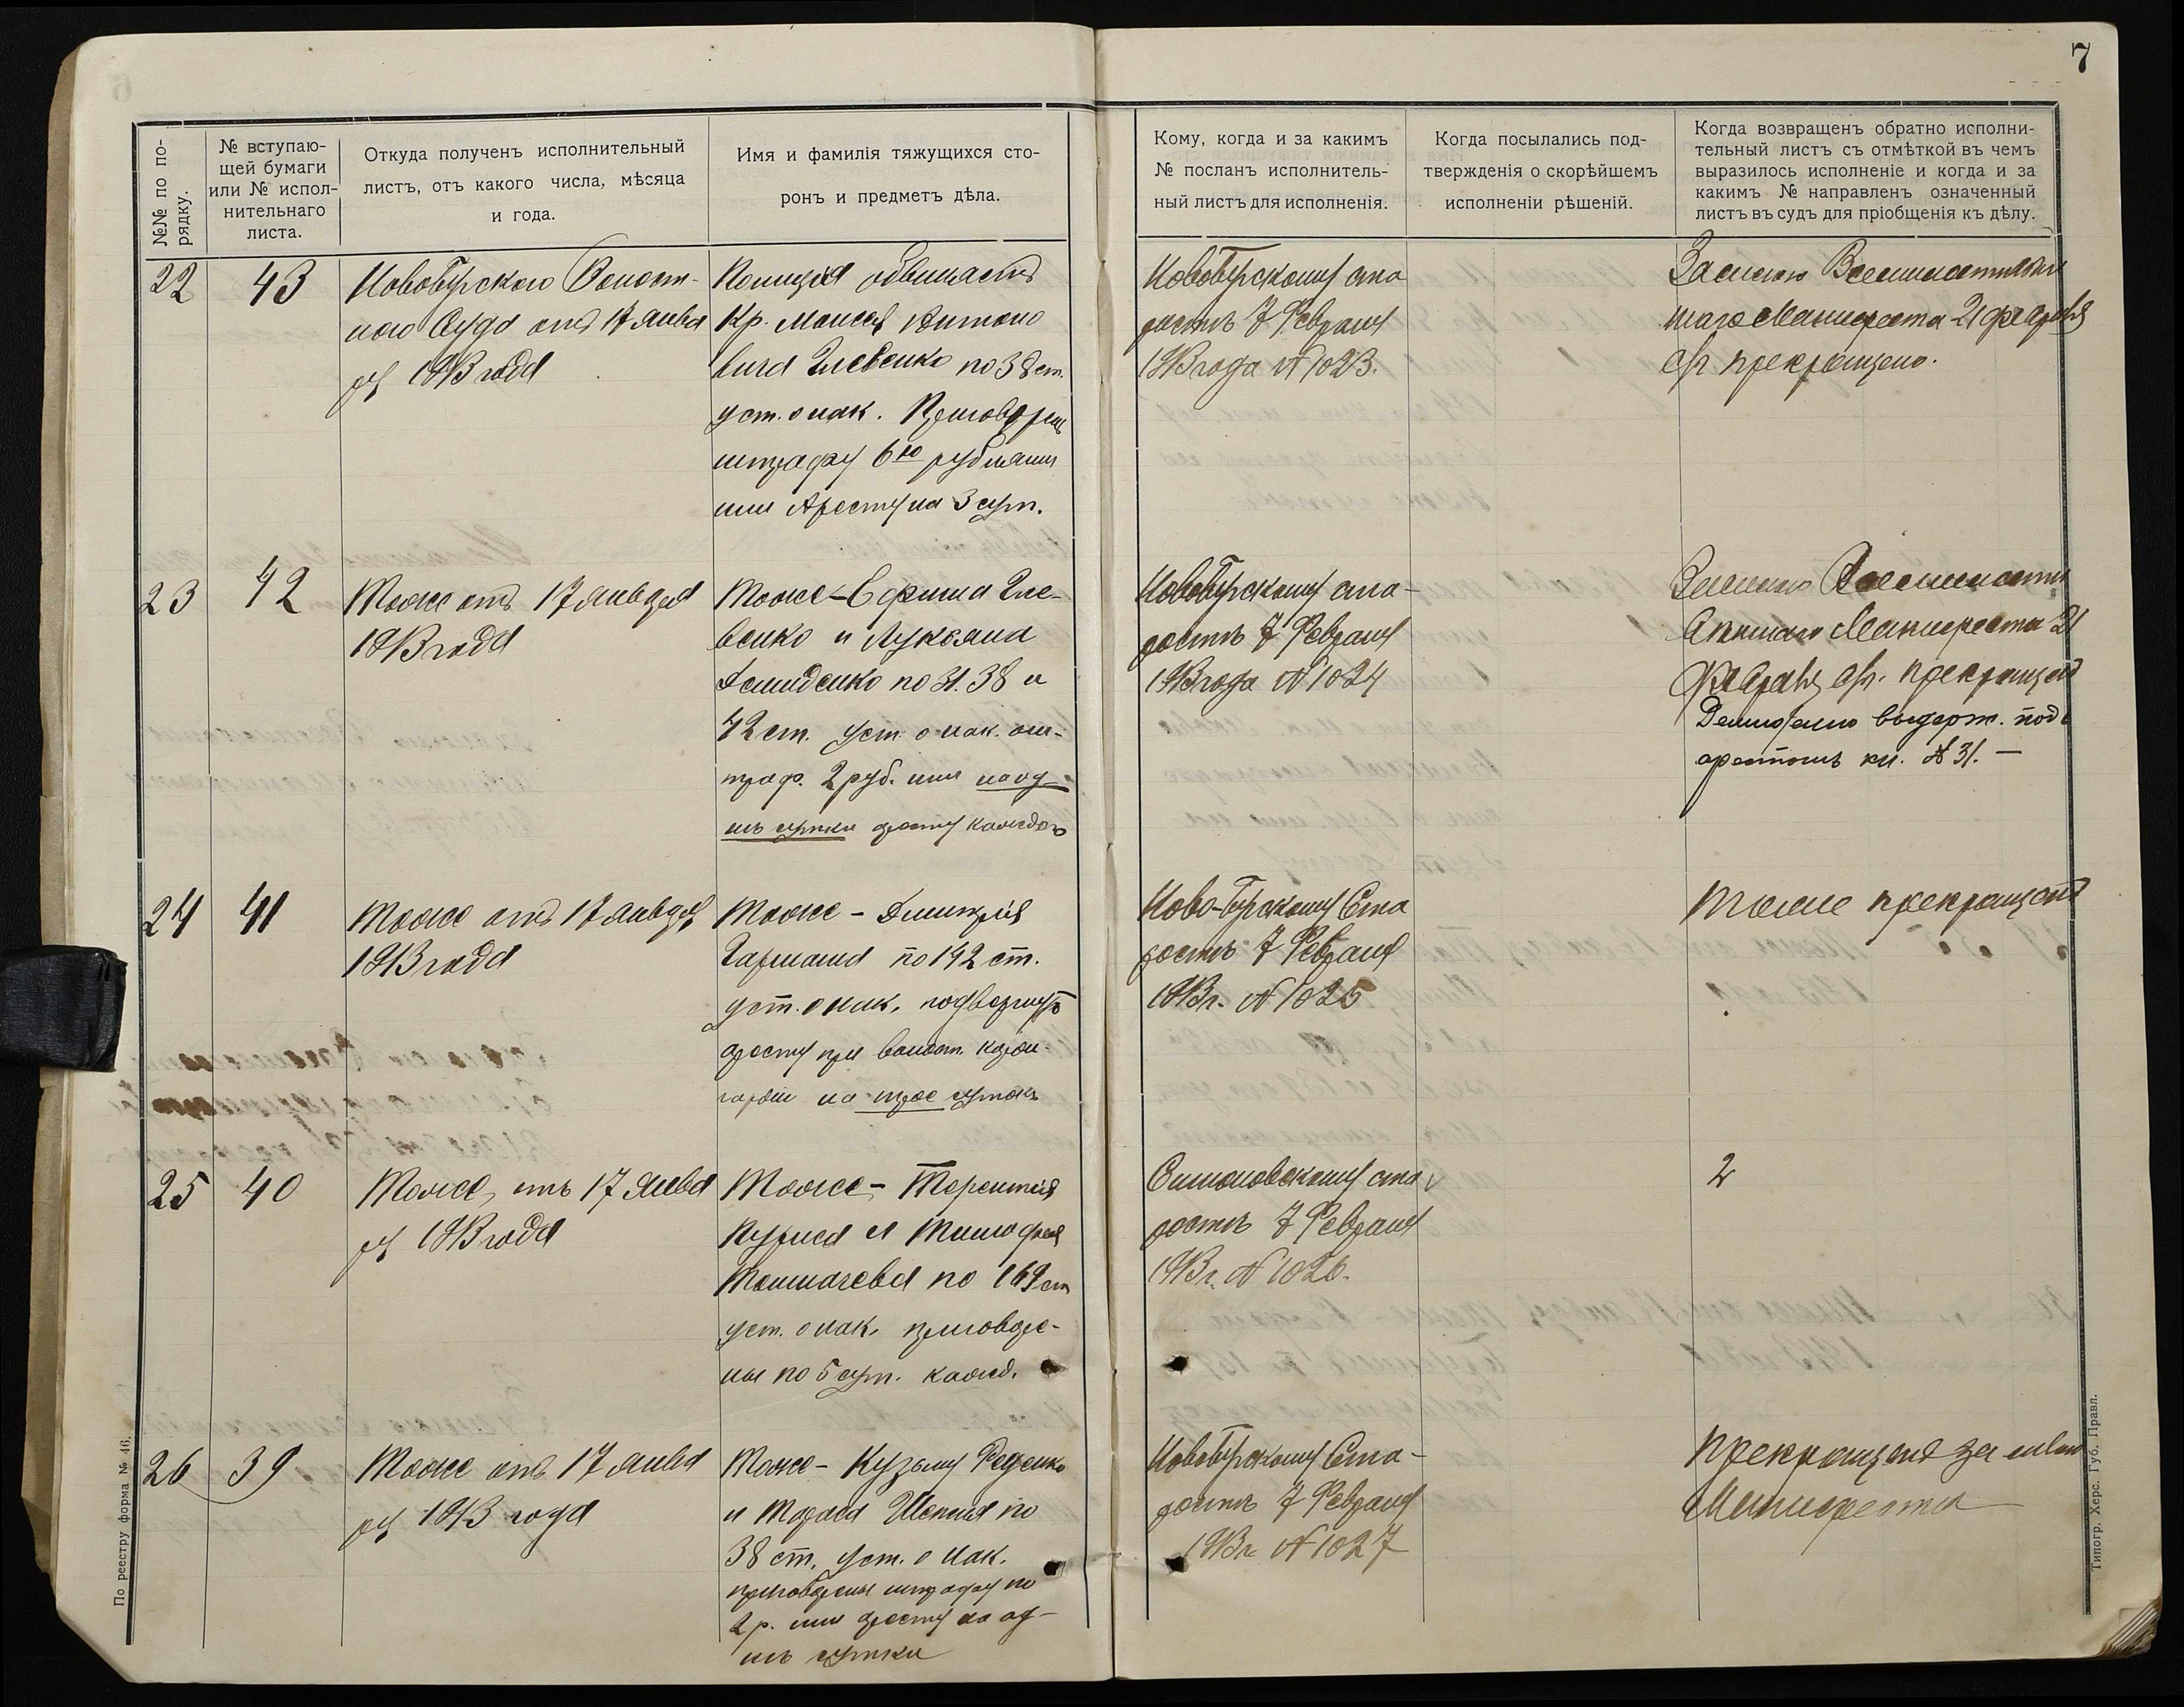 7
№№ по по-
рядку.
№ вступаю-
щей бумаги
или № испол-
нительнаго
листа.
Откуда полученъ исполнительный
листъ, отъ какого числа, мѣсяца
и года.
Имя и фамилія тяжущихся сто-
ронъ и предметъ дѣла.
Кому, когда и за какимъ
№ посланъ исполнитель-
ный листъ для исполненія.
Когда посылались под-
твержденія о скорѣйшемъ
исполненіи рѣшеній.
Когда возвращенъ обратно исполни-
тельный листъ съ отмѣткой въ чемъ
выразилось исполненіе и когда и за
какимъ № направленъ означенный
листъ въ судъ для пріобщенія къ дѣлу.
22
43
Новобугского Волост-
ного Суда отъ 17 Янва
ря 1913 года
Полиція обвиняетъ
Кр. Моисея Антоно
вича Глевенко по 38 ст.
уст. о нак. Приговоренъ
штрафу 6ю рублями
или Аресту на 3 сут.
Новобугскому ста
ростѣ 7 Февраля
1913 года № 1023.
Всемилостивѣй
шаго Манифеста 21 февраля
с/г прекращено.
23
42
Тоже отъ 17 января
1913 года
Тоже - Ефима Гле-
венко и Лукьяна
Демиденко по 31. 38 и
42 ст. Уст. о нак. ош-
траф. 2 руб. или на од-
нѣ сутки аресту каждого
Новобугскому ста-
ростѣ 7 Февраля
1913 года № 1024
Манифеста 21
Февраля с/г. прекращено
Демиденко выдерж. подъ
арестомъ кн. № 31. —
24
41
Тоже отъ 17 Января
1913 года
Тоже - Дмитрія
Гармаша по 142 ст.
уст. о нак. подвергнутъ
аресту при волост. кор-
на трое сутокъ
Ново-Бугскому Ста
ростѣ 7 Февраля
1913 г. № 1025
Тоже прекращено
25
40
Тоже, отъ 17 Янва
ря 1913 года
Тоже - Терентія
и Тимофея
Толмачева по 169 ст
уст. о нак. приговоре-
ны по 5 сут. кажд.
Симоновскому ста
ростѣ 7 Февраля
1913 г. № 1026.
26
39
Тоже отъ 17 Янва
ря 1913 года
Тоже - Кузьму Феденко
и Тараса Шепеля по
38 ст. Уст. о нак.
приговорены штрафу по
2 р. или аресту на од-
нѣ сутки
Новобугскому Ста-
ростѣ 7 Февраля
1913 г. № 1027
Прекращено за силою
Манифеста
По реестру форма № 46.
Типогр. Херс. Губ. Правл.